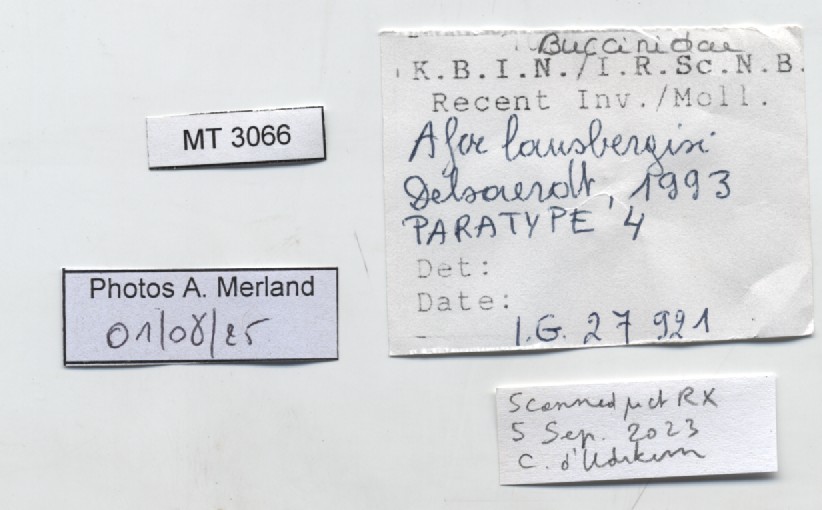 Buccinidae
K.B.I.N./I.R.Sc.N.B.
Recent Inv./Moll.
MT 3066
Afer lansbergisi
Delsaerdt, 1993
PARATYPE 4
Det:
Date:
I.G. 27 921
Photos A. Merland
01/08/25
Scanned µct RX
5 Sep. 2023
C. d'Udekem